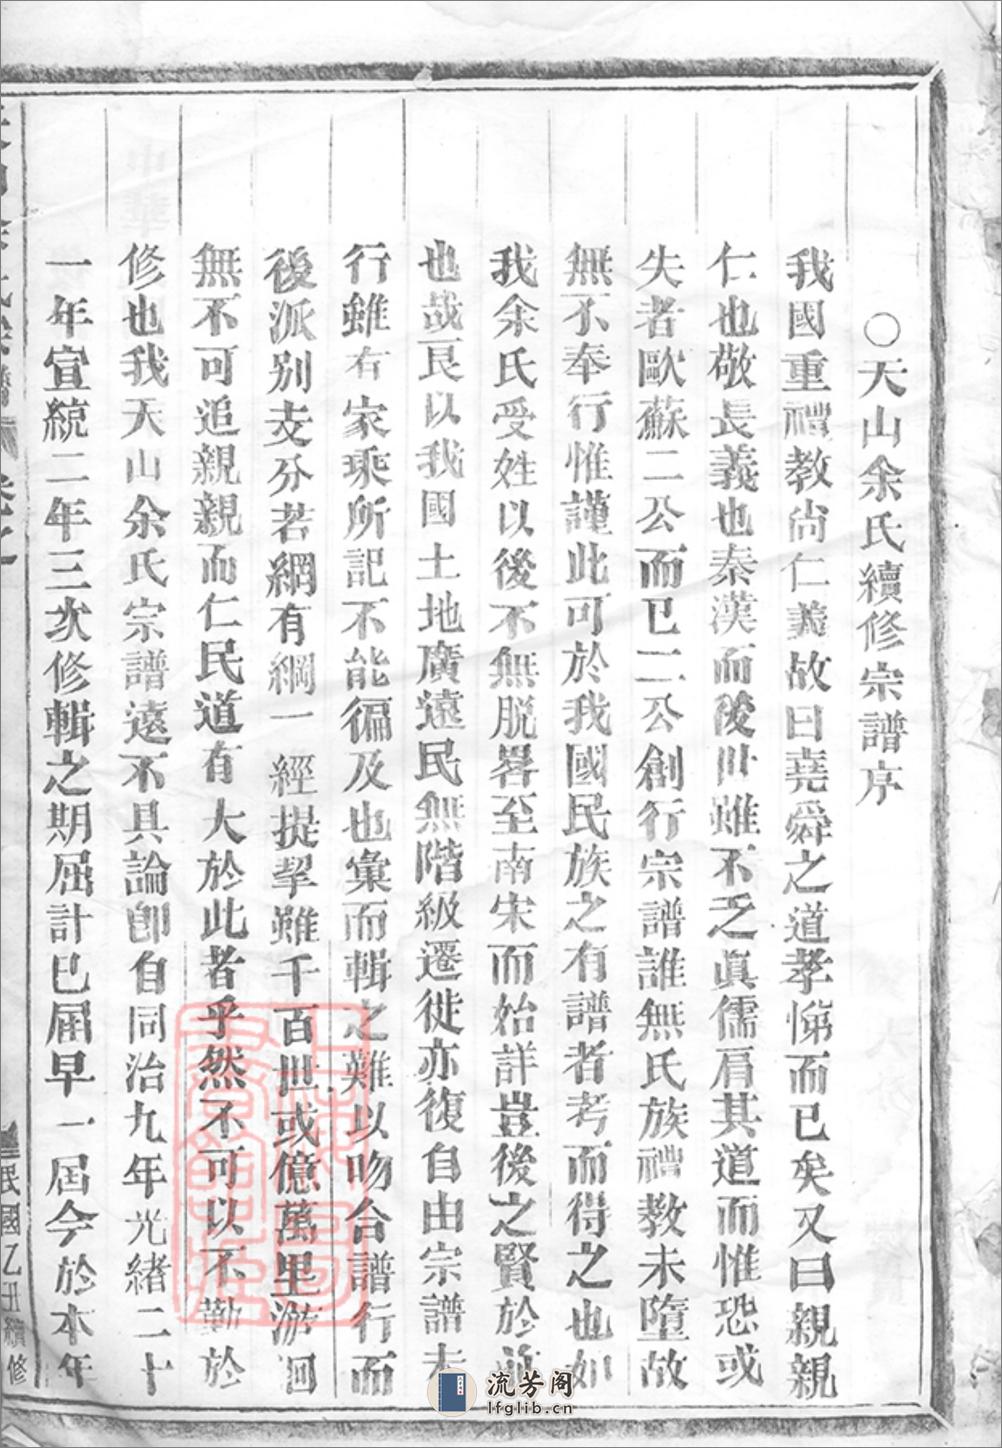 ○天山余氏續修宗譜序
我國重禮教尙仁義故曰堯舜之道孝悌而已矣又曰親親
仁也敬長義也秦漢而後世雖不乏眞儒肩其道而惟恐或
失者歐蘇二公而已二公創行宗譜誰無氏族禮教未墮故
無不奉行惟謹此可於我國民族之有譜者考而得之也如
我余氏受姓以後不無脱畧至南宋而始詳豈後之賢於前
也哉良以我國土地廣遠民無階級遷徙亦復自由宗譜未
行雖有家乘所記不能徧及也彙而輯之難以吻合譜行而
後派別支分若網有綱一經提挈雖千百世或億萬里游洄
無不可追親親而仁民道有大於此者乎然不可以不勤於
修也我天山余氏宗譜遠不具論卽自同治九年光緒二十
一年宣統二年三次修輯之期屈計已屆早一屆今於本年
民國乙丑續修
流芳阁
lfglib.cn